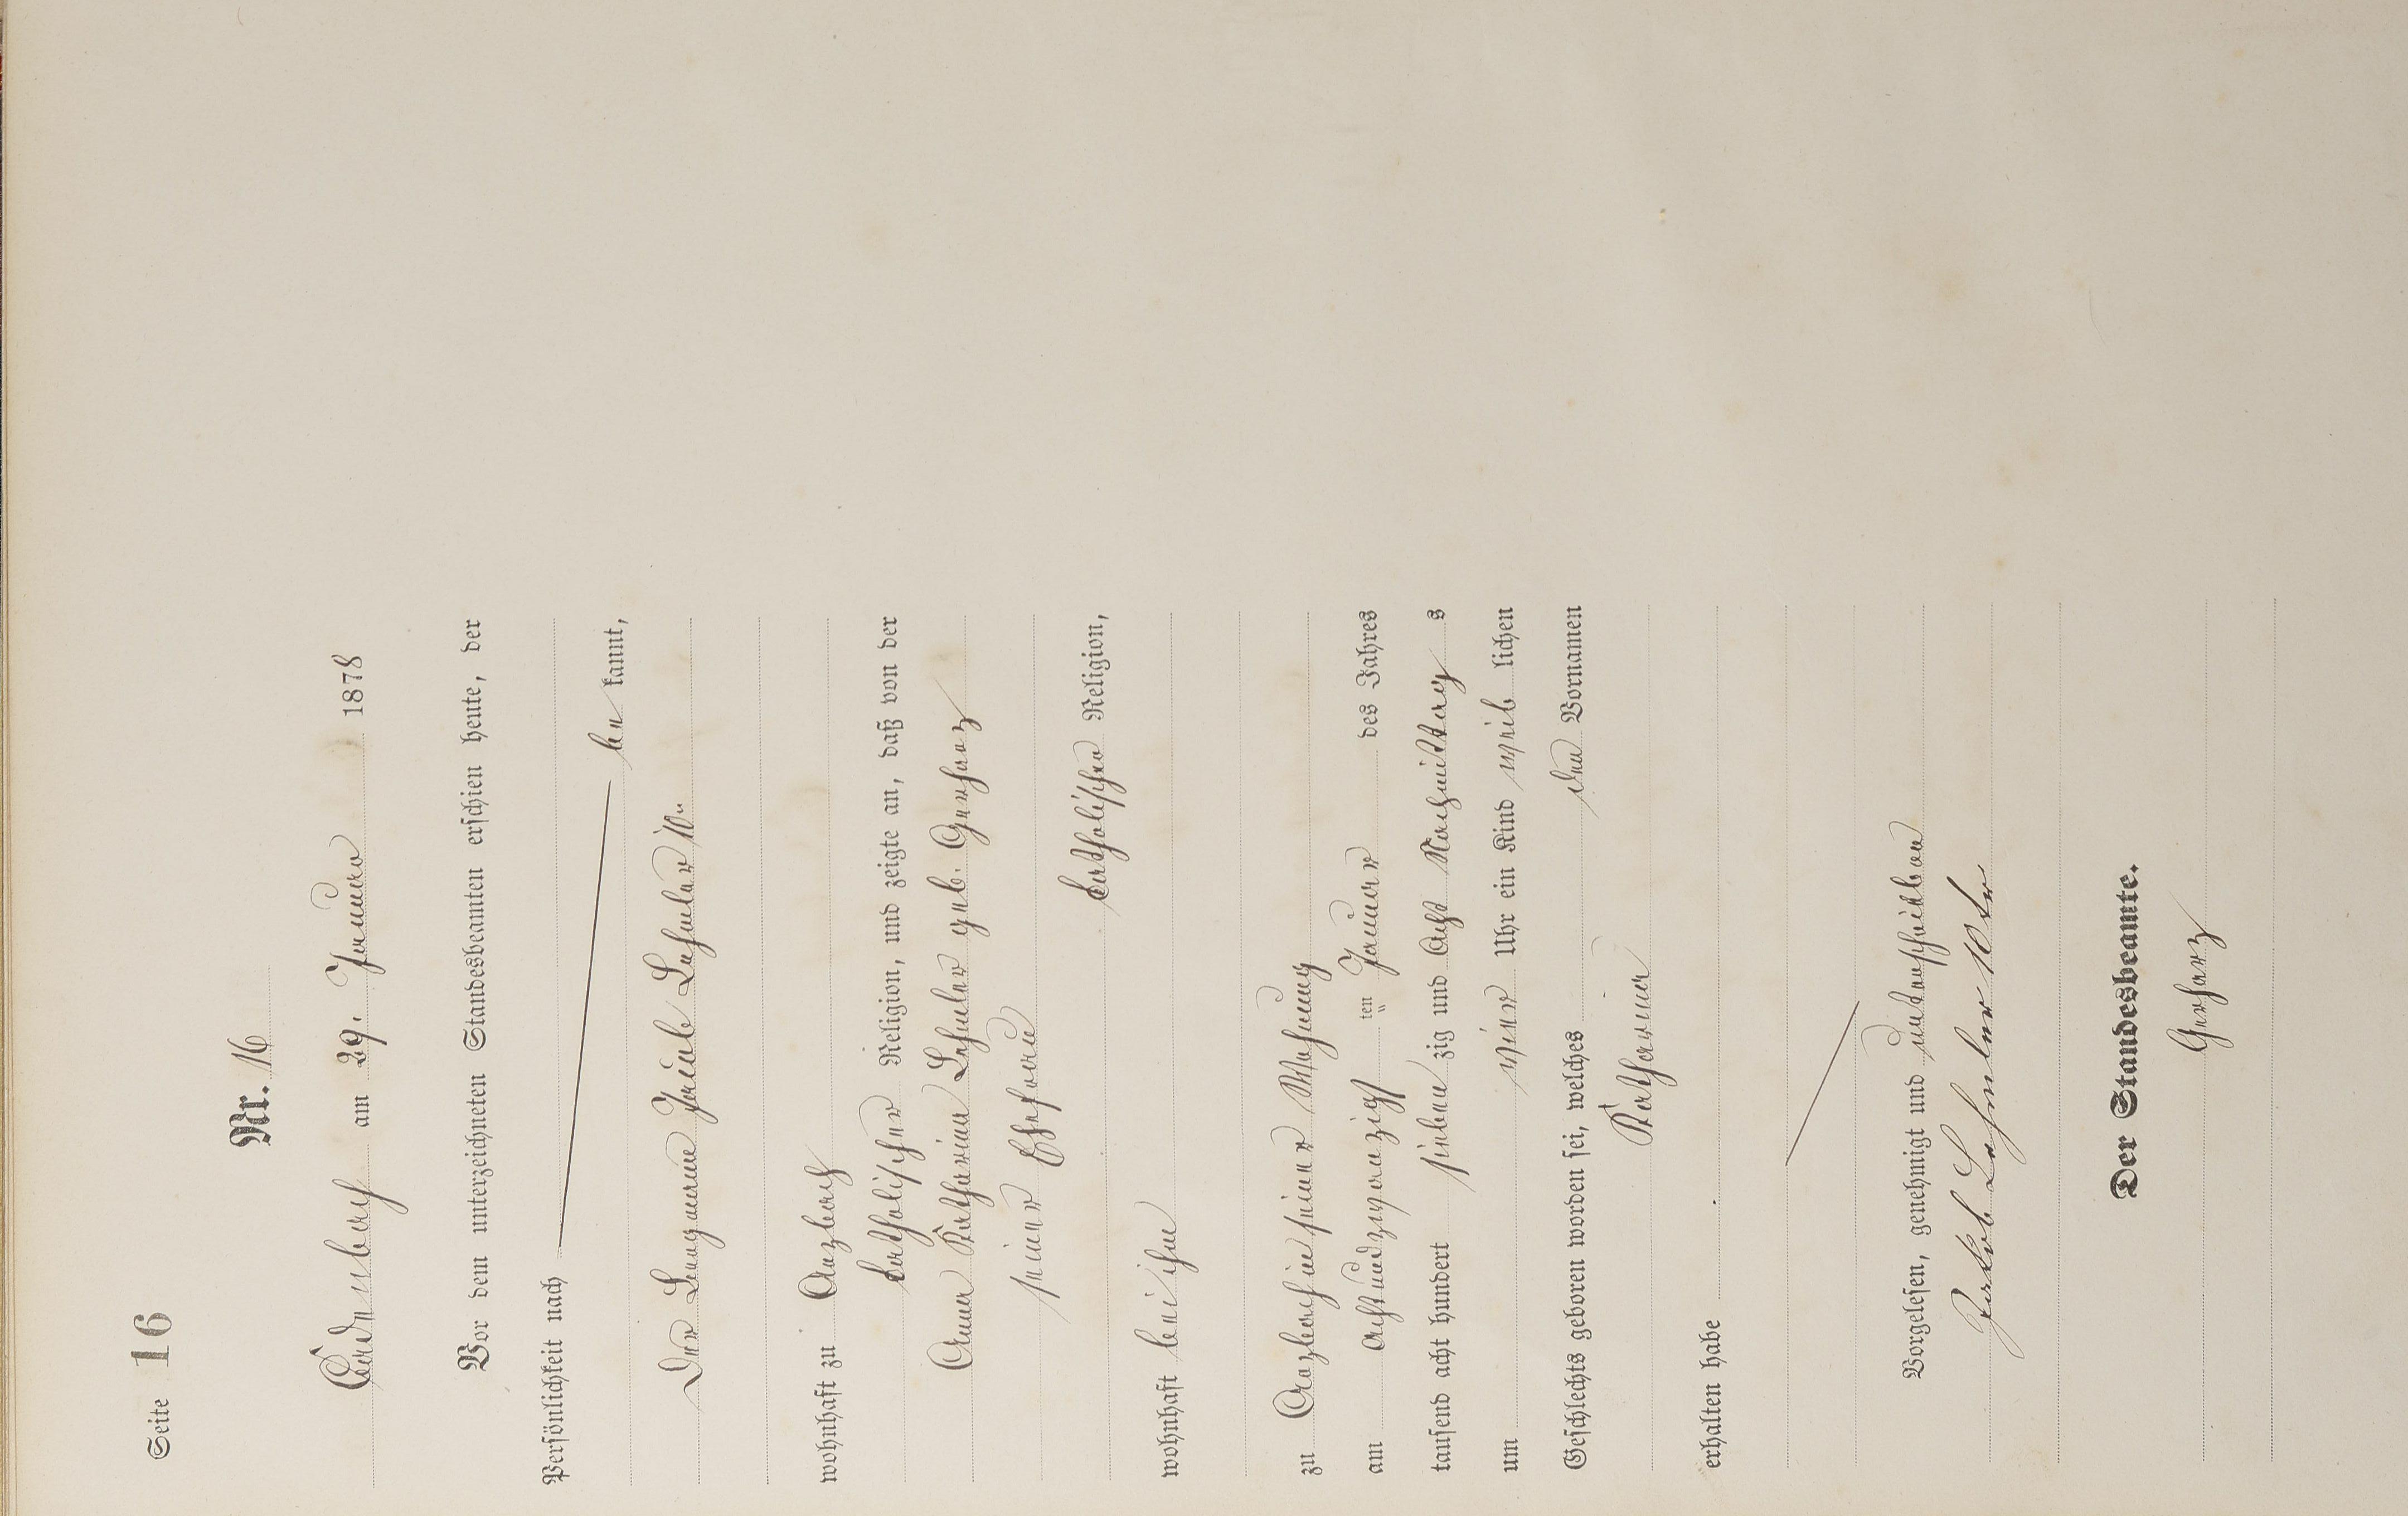 Seite 16
Nr. 16
Cadenbach am 29. Januar 1878
Vor dem unterzeichneten Standesbeamten erschien heute, der
Persönlichkeit nach
be kannt,
Der Jacob Lehmler 10.
wohnhaft zu Arzbach
katholischer Religion, und zeigte an, daß von der
Anna Katharina Lehmler geb. Gerharz
seiner Ehefrau
katholischer Religion,
wohnhaft bei ihm
zu Arzbach in seiner Wohnung
am achtundzwanzigsten Januar des Jahres
tausend acht hundert sieben zig und Acht Nachmittag s
um vier Uhr ein Kind weib lichen
Geschlechts geboren worden sei, welches den Vornamen
Katharina
erhalten habe
Vorgelesen, genehmigt und unterschrieben
Jakob Lehmler 10ter
Der Standesbeamte.
Gerharz